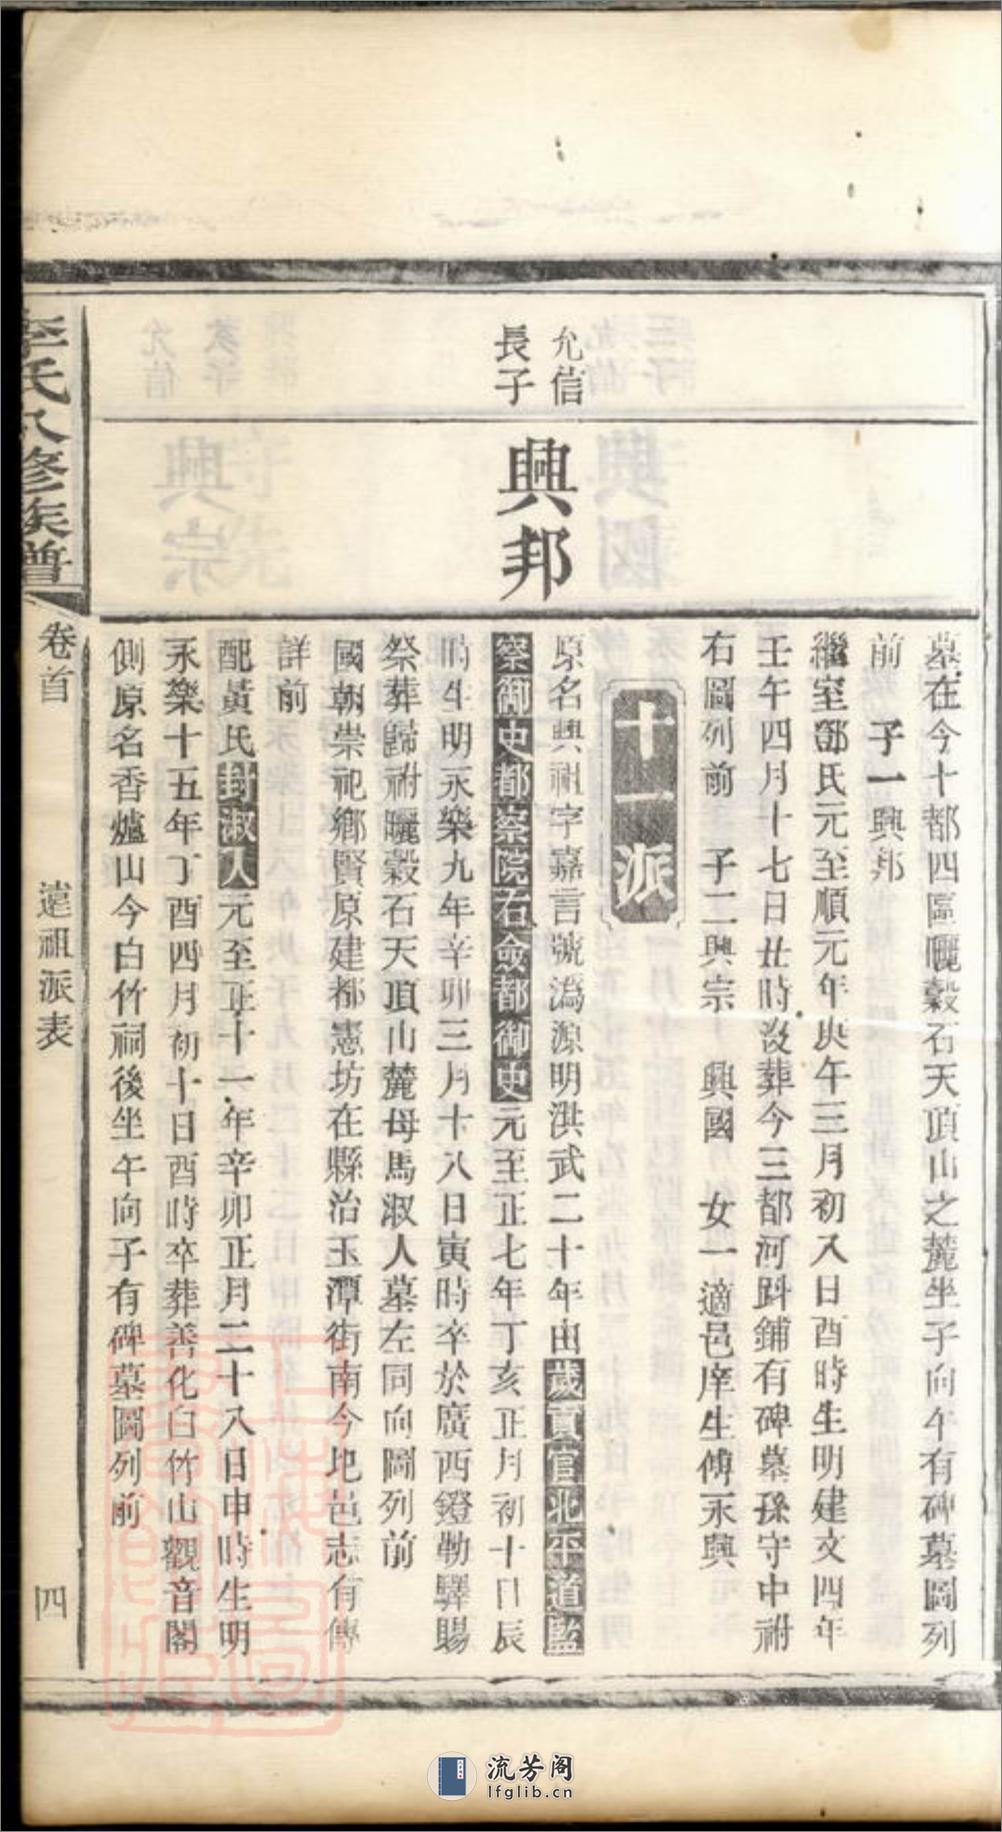 墓在今十都四區曬穀石天頂山之麓坐子向午有碑墓圖列
前　子一興邦
繼室鄧氏元至順元年庚午三月初入日酉時生明建文四年
壬午四月十七日丑時沒葬今三都河㪷鋪有碑墓孫守中祔
右圖列前　子二興宗　興國　女一適邑庠生傅永興
十一派
允信
長子
興邦
原名興祖字嘉言號溈源明洪武二十年由歲貢官北平道監
察御史都察院右僉都御史元至正七年丁亥正月初十日辰
時生明永樂九年辛卯三月十八日寅時卒於廣西鐙勒驛賜
祭葬歸祔曬穀石天頂山麓母馬淑人墓左同向圖列前
國朝崇祀鄉賢原建都憲坊在縣治玉潭街南今圯邑志有傳
詳前
配黃氏封淑人元至正十一年辛卯正月二十八日申時生明
永樂十五年丁酉四月初十日酉時卒葬善化白竹山觀音閣
側原名香爐山今白竹祠後坐午向子有碑墓圖列前
李氏八修族譜
卷首
遠祖派表
四
流芳阁
lfglib.cn